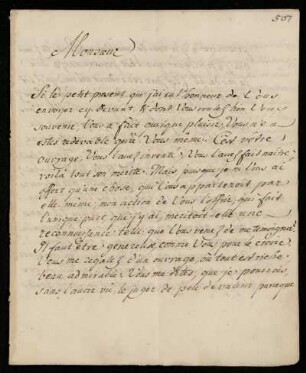 507
Monsieur
Si le petit present, qui j'ai eu l'honneur de Vous
envoyer cy devant, & dont Vous voulés bien Vous
souvenir, Vous a fait quelque plaisir, Vous n'en
estes redevable qu'à Vous même. C'est vôtre
ouvrage. Vous l'avés inventé, Vous l'avés fait naitre,
voilà tout son merite. Mais puisque je n'ai
offert qu'une chose, qui Vous appartenoit par
elle même, mon action de Vous l'offrir, qui fait
l'unique part, que j'y ai, meritoit-elle une
reconnoissance telle que Vous venés de me temoigner?
Il faut être genereux comme Vous pour le croire.
Vous me regalés d'un ouvrage, où tout est riche,
beau, admirable. Vous me dites, que je pourrois,
sans l'avoir vû, le juger de peu de valeur puisque